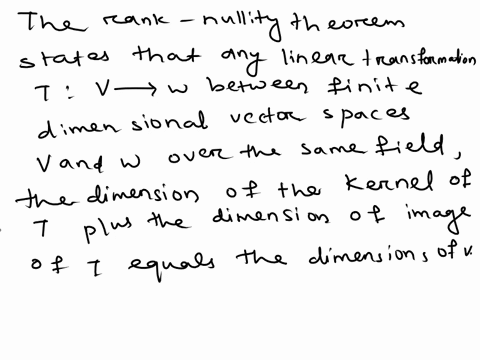 The rank-nullity theorem
states that any linear transformation
T: V → W between finite
dimensional vector spaces
V and W over the same field,
the dimension of the kernel of
T plus the dimension of image
of T equals the dimensions of V